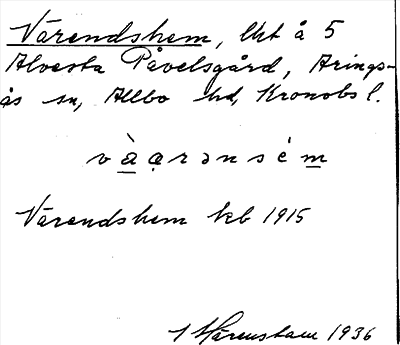 Värendshem, lht å 5
Alvesta Påvelsgård, Arings-
ås sn, Allbo hd, Kronobs l.
v à̲ ạ r ə n s é m̲
Värendshem kb 1915
1936